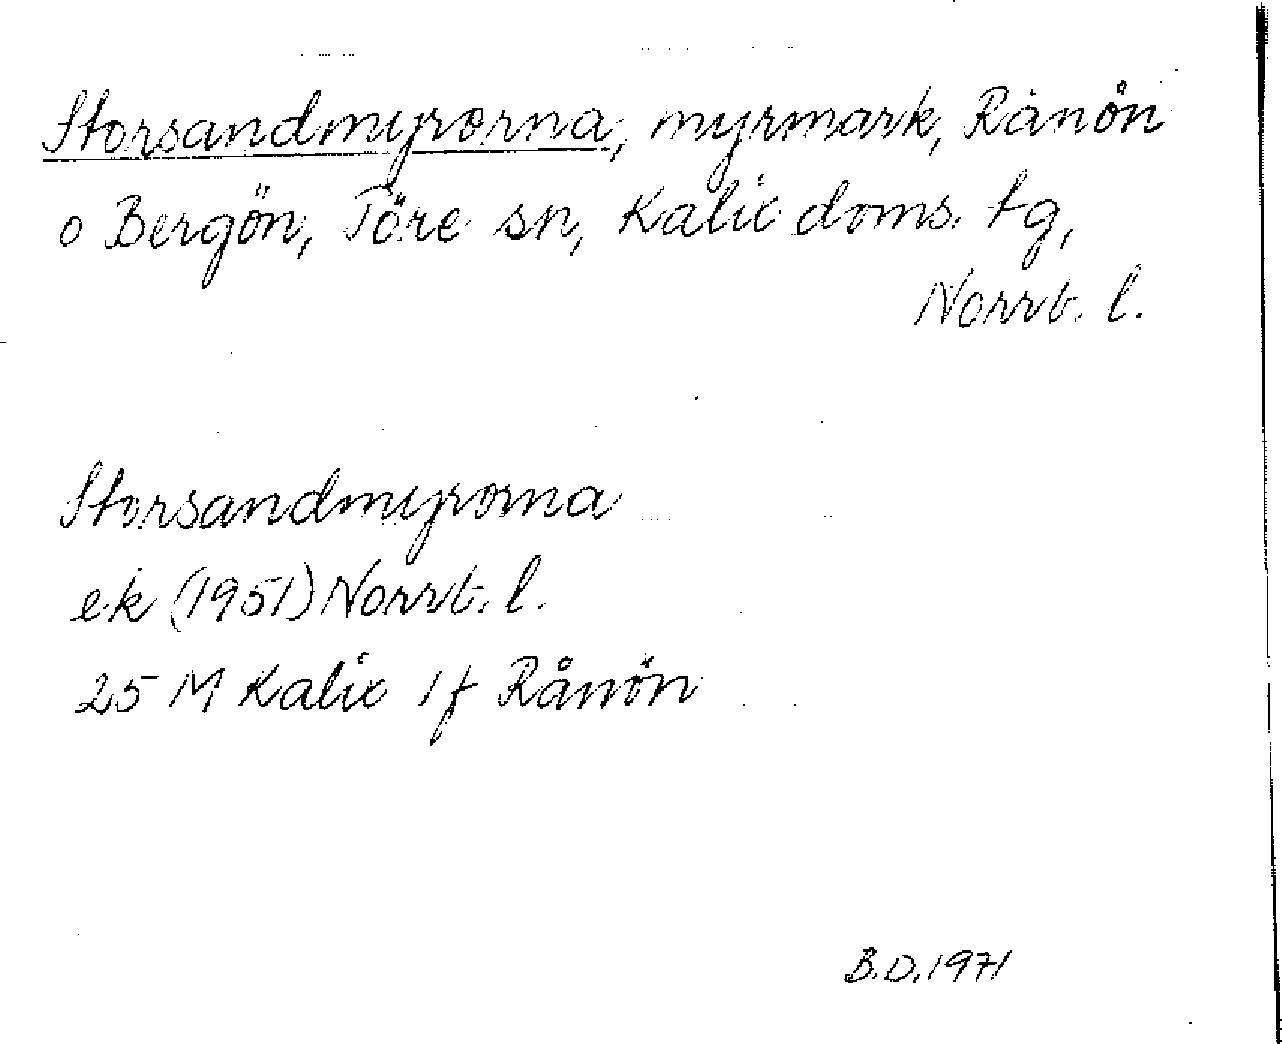 Storsandmyrorna, myrmark, Rånön
o Bergön, Töre sn, Kalix doms. tg,
Norrb. l.
Storsandmyrorna
ek (1951) Norrb. l.
25 M Kalix 1f Rånön
B.D.1971